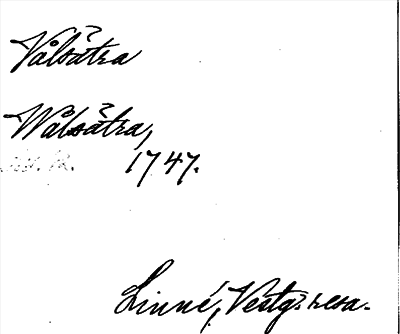 Vålsätra
Wålsätra,
1747.
Linné, Vestg. resa.